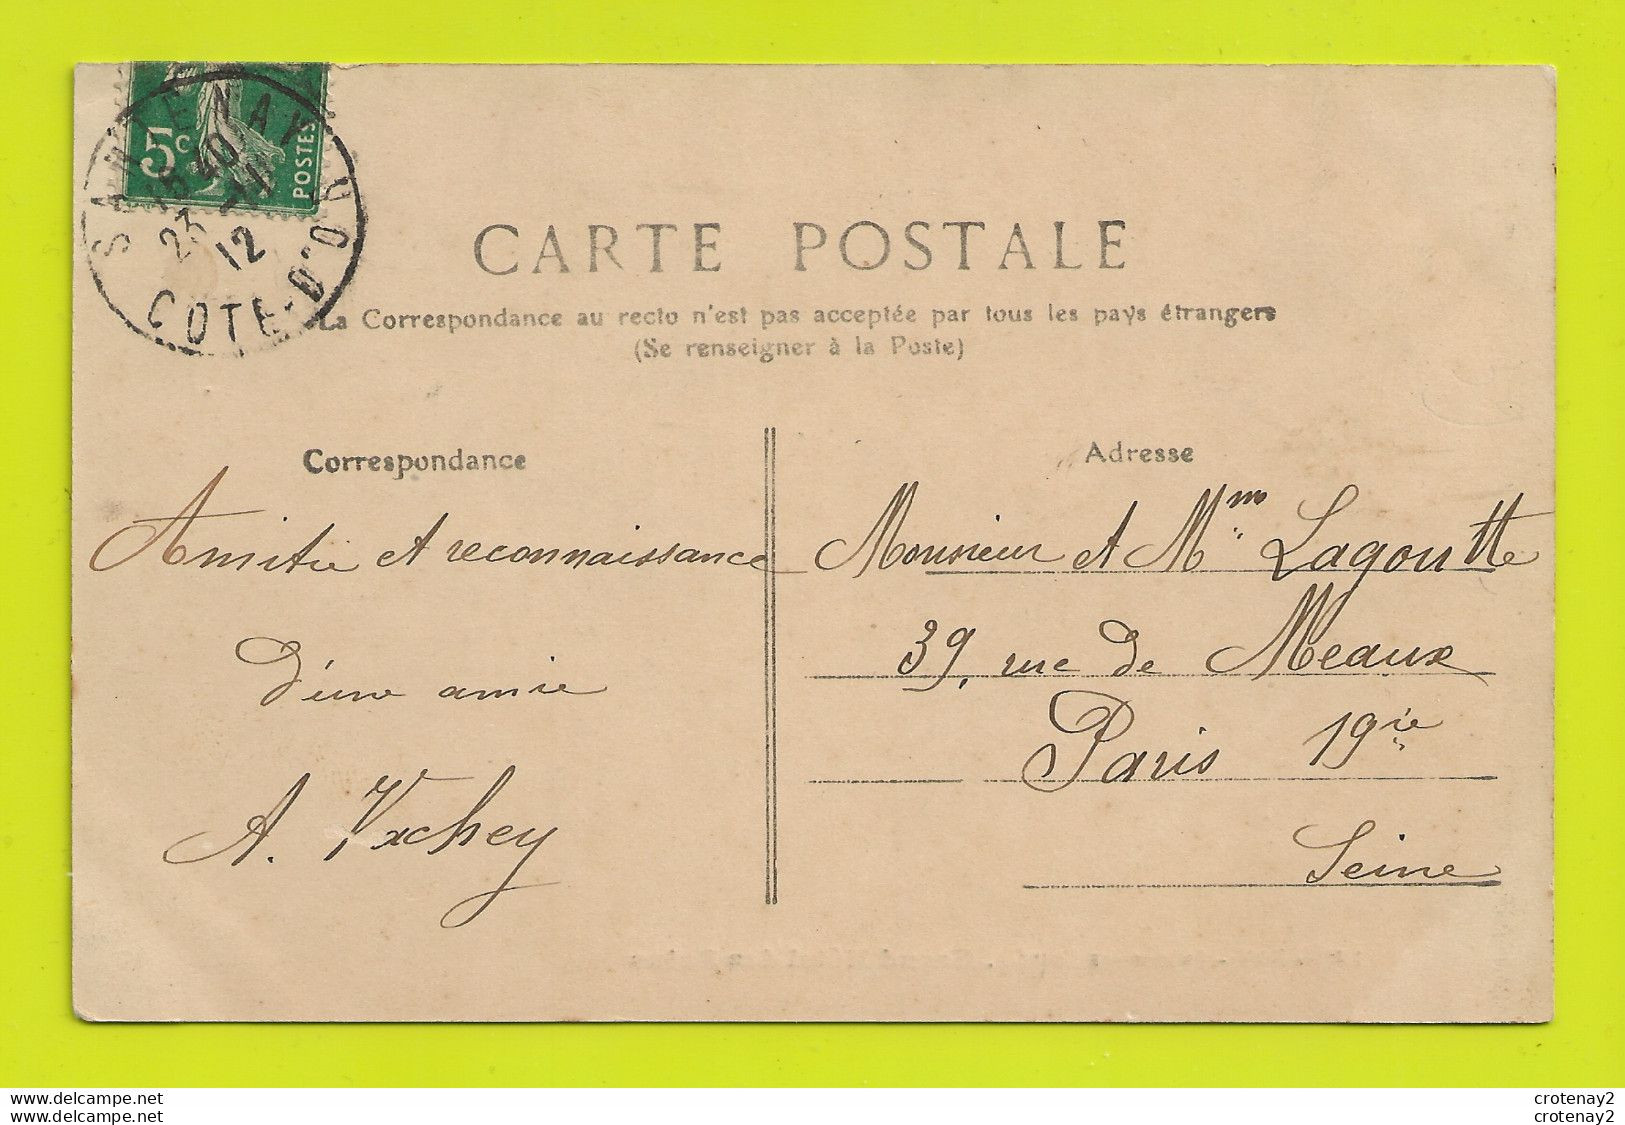 5c
POSTES
SANTENAY
15 40
23 -11
12
COTE-D'O
CARTE POSTALE
La Correspondance au recto n'est pas acceptée par tous les pays étrangers
(Se renseigner à la Poste)
Correspondance
Amitié et reconnaissance
d'une amie
A. Vachey
Adresse
Monsieur et Mme Lagoutte
39, rue de Meaux
Paris 19ie
Seine
www.delcampe.net
www.delcampe.net
crotenay2
crotenay2